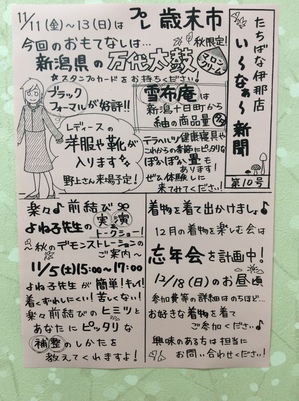 たちばな伊那店
い〜なぁ〜新聞
第10号
11/11(金)〜13(日)は プレ歳末市
今回のおもてなしは…
秋限定!
新潟県の万代太鼓
スタンプカードをお持ちください!
ブラック
フォーマルが好評!!
レディースの
洋服や靴が
入ります
野上さん来場予定!
雪布庵は
新潟十日町から
紬の商品量
テラヘルツ健康寝具や
これからの季節にピッタリな
ぽかぽか畳も
あります!
ぜひ体験しに
来てみてください!
楽々♪前結び
よね子先生の実演
トークショー!
〜秋のデモンストレーションの
ご案内〜
11/5(土)15:00〜17:00
よね子先生が簡単!キレイ!
着くずれしにくい!苦しくない!
楽々前結びのヒミツと
あなたにピッタリな
補整のしかたを
教えてくれますよ!
着物を着て出かけましょ♪
12月の着物を楽しむ会は
忘年会を計画中!
12/18(日)のお昼頃
参加費等の詳細はのちほど…
お好きな着物を着て
ご参加ください♪
興味のある方は担当に
お問い合わせください!